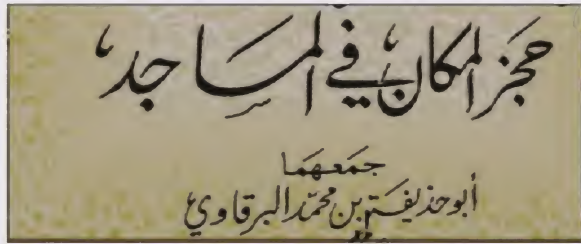 حجز المكان في المساجد
جمعهما
أبو حذيفة بن محمد البرقاوي